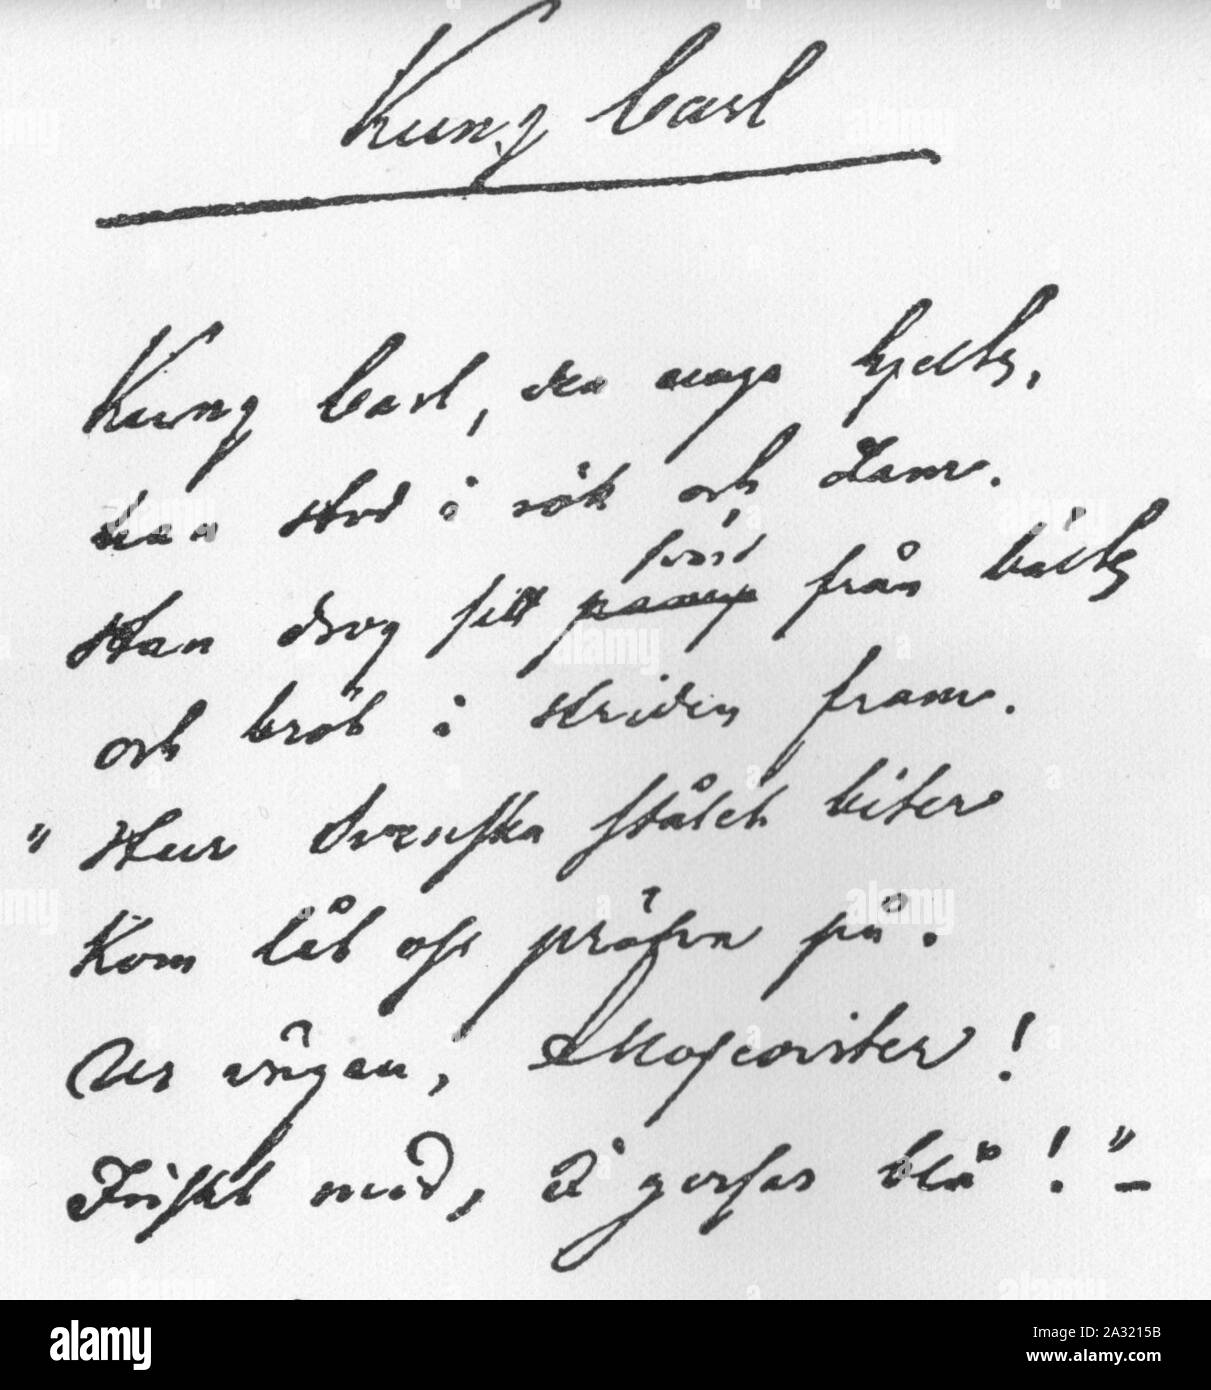 Kung Carl
Kung Carl, den unga hjelte,
han stod i rök och dam.
svärd
Han drog sitt från bälte
och bröt i striden fram.
"Hur Svenska stålet biter
Kom låt oss pröfva på.
Ur vägen, Moscoviter!
Friskt mod, I gossar blå!"–
alamy
Image ID: 2A3215B
www.alamy.com